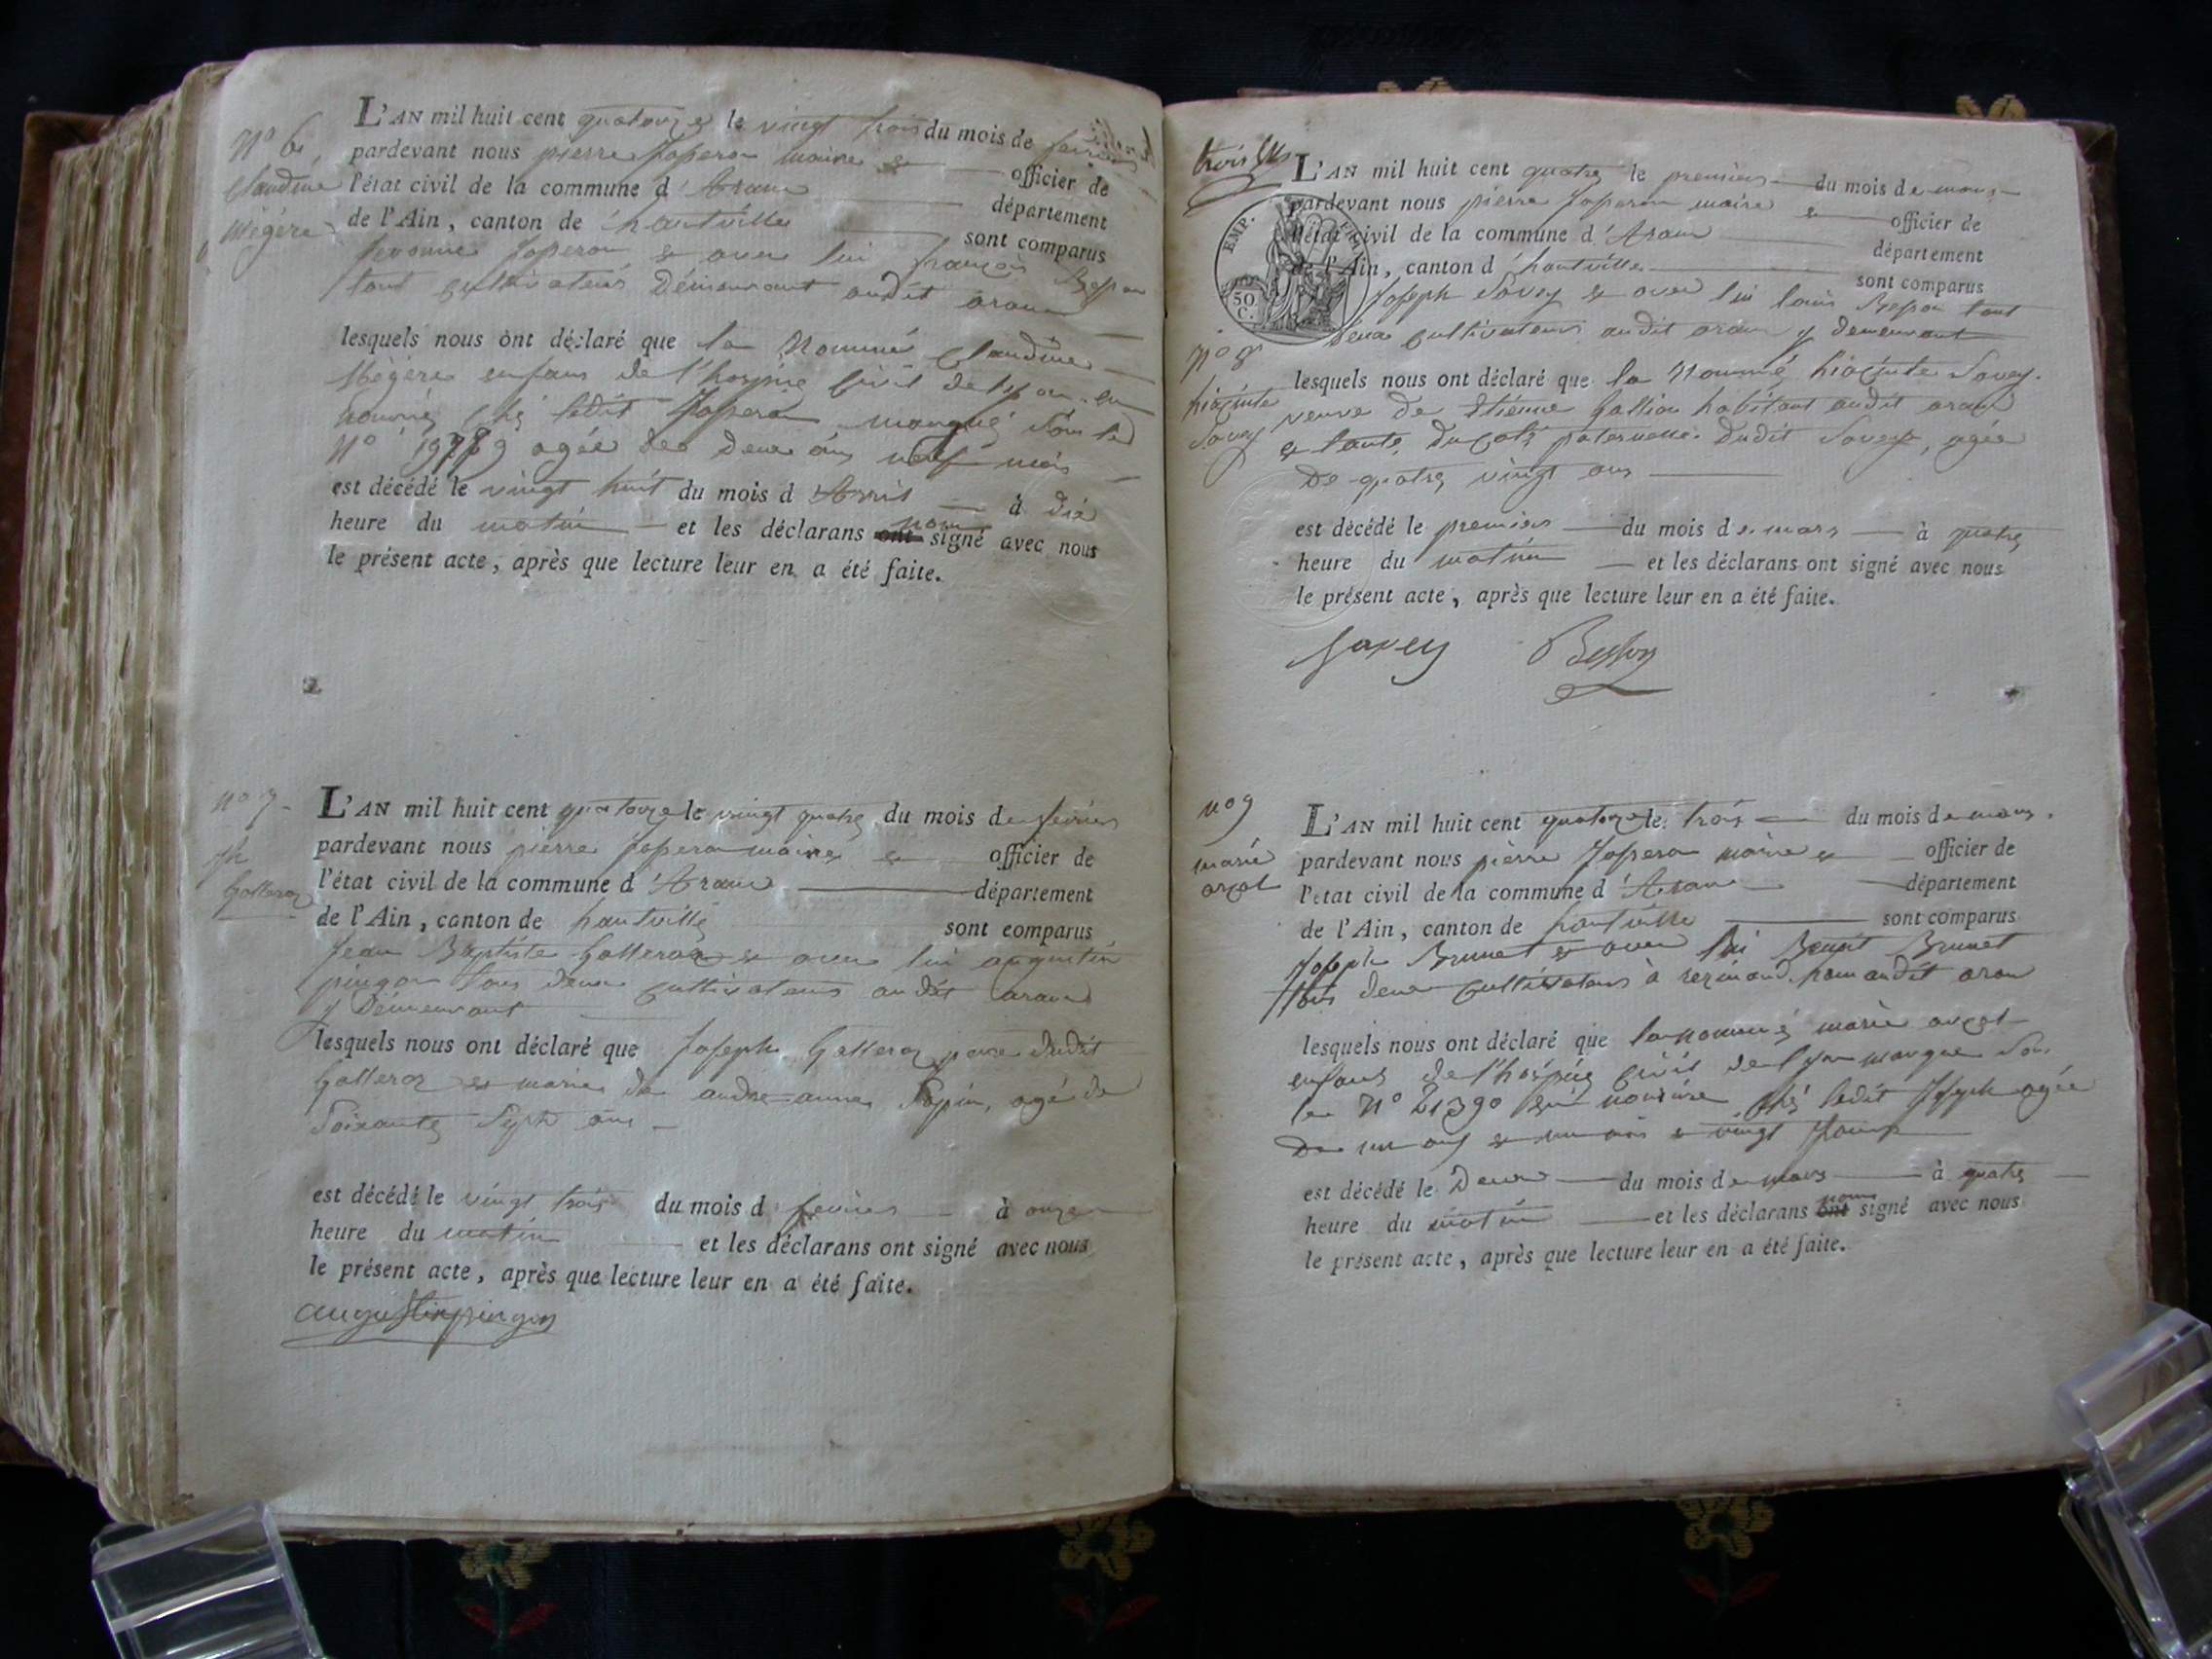 N° 6
Claudine
Mégère
L'AN mil huit cent quatorze le vingt trois du mois de fevrier
pardevant nous pierre Joperon maire & officier de
l'état civil de la commune d'Aranc département
de l'Ain, canton de hautville sont comparus
Joperon & avec lui françois Besson
tout cultivateurs Demeurant audit aranc
lesquels nous ont déclaré que la Nommé Claudine
Mégère enfans de l'hospice Civil de Lyon en
chés ledit Joperon marqué sous le
N° agée de Deux ans neuf mois
est décédé le vingt huit du mois d Avril à dix
heure du matin et les déclarans non signé avec nous
le présent acte, après que lecture leur en a été faite.
N° 7
jh
Galleroz
L'AN mil huit cent quatorze le vingt quatre du mois de fevrier
pardevant nous pierre Joperon maire & officier de
l'état civil de la commune d'Aranc département
de l'Ain, canton de hautville sont comparus
Jean Baptiste Galleroz & avec lui augustin
pingon tous deux cultivateurs audit aranc
y Demeurant
lesquels nous ont déclaré que Joseph Galleroz pere dudit
Galleroz & marie de andre anne Sapin, agé de
Soixante Sept ans
est décédé le vingt trois du mois d fevrier à onze
heure du matin et les déclarans ont signé avec nous
le présent acte, après que lecture leur en a été faite.
augustin pingon
trois
EMP.
50
C.
N° 8
hiacinte
Savey
L'AN mil huit cent quatorze le premier du mois de mars
pardevant nous pierre Joperon maire & officier de
l'état civil de la commune d'Aranc département
de l'Ain, canton d hautville sont comparus
Joseph Savey & avec lui louis Besson tout
deux cultivateurs audit aranc y demeurant
lesquels nous ont déclaré que la Nommé hiacinte Savey
veuve de Etienne Gallion habitant audit aranc
& tante du coté paternelle dudit Savey, agée
De quatre vingt ans
est décédé le premier du mois de mars à quatre
heure du matin et les déclarans ont signé avec nous
le présent acte, après que lecture leur en a été faite.
Savey Besson
N° 9
marie
argot
L'AN mil huit cent quatorze le trois du mois de mars
pardevant nous pierre Joperon maire & officier de
l'état civil de la commune d'Aranc département
de l'Ain, canton de hautville sont comparus
Joseph Brunet & avec lui Benoit Brunet
tous deux cultivateurs à audit aranc
lesquels nous ont déclaré que la nommé marie argot
enfans de l'hospice civil de lyon marque sou
le N° 21390 en chés ledit Joseph agée
De un ans & un mois & vingt Jours
est décédé le Deux du mois de mars à quatre
heure du matin et les déclarans non signé avec nous
le présent acte, après que lecture leur en a été faite.